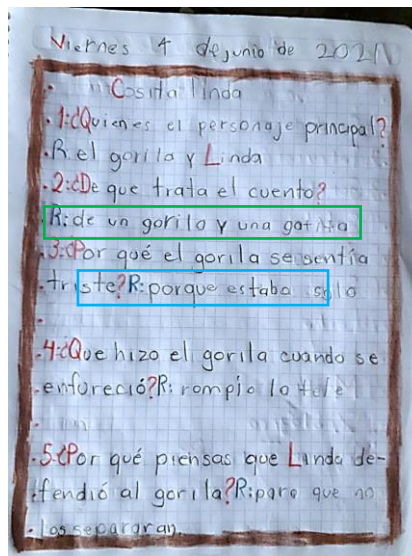 Viernes 4 de junio de 2021
Cosita linda
1:¿Quien es el personaje principal?
R. el gorila y Linda
2:¿De que trata el cuento?
R: de un gorila y una gatita
3:¿Por qué el gorila se sentía
triste? R: porque estaba solo
4:¿Que hizo el gorila cuando se
enfureció? R: rompio la tele
5:¿Por qué piensas que Linda de-
fendió al gorila? R: para que no
los separaran.